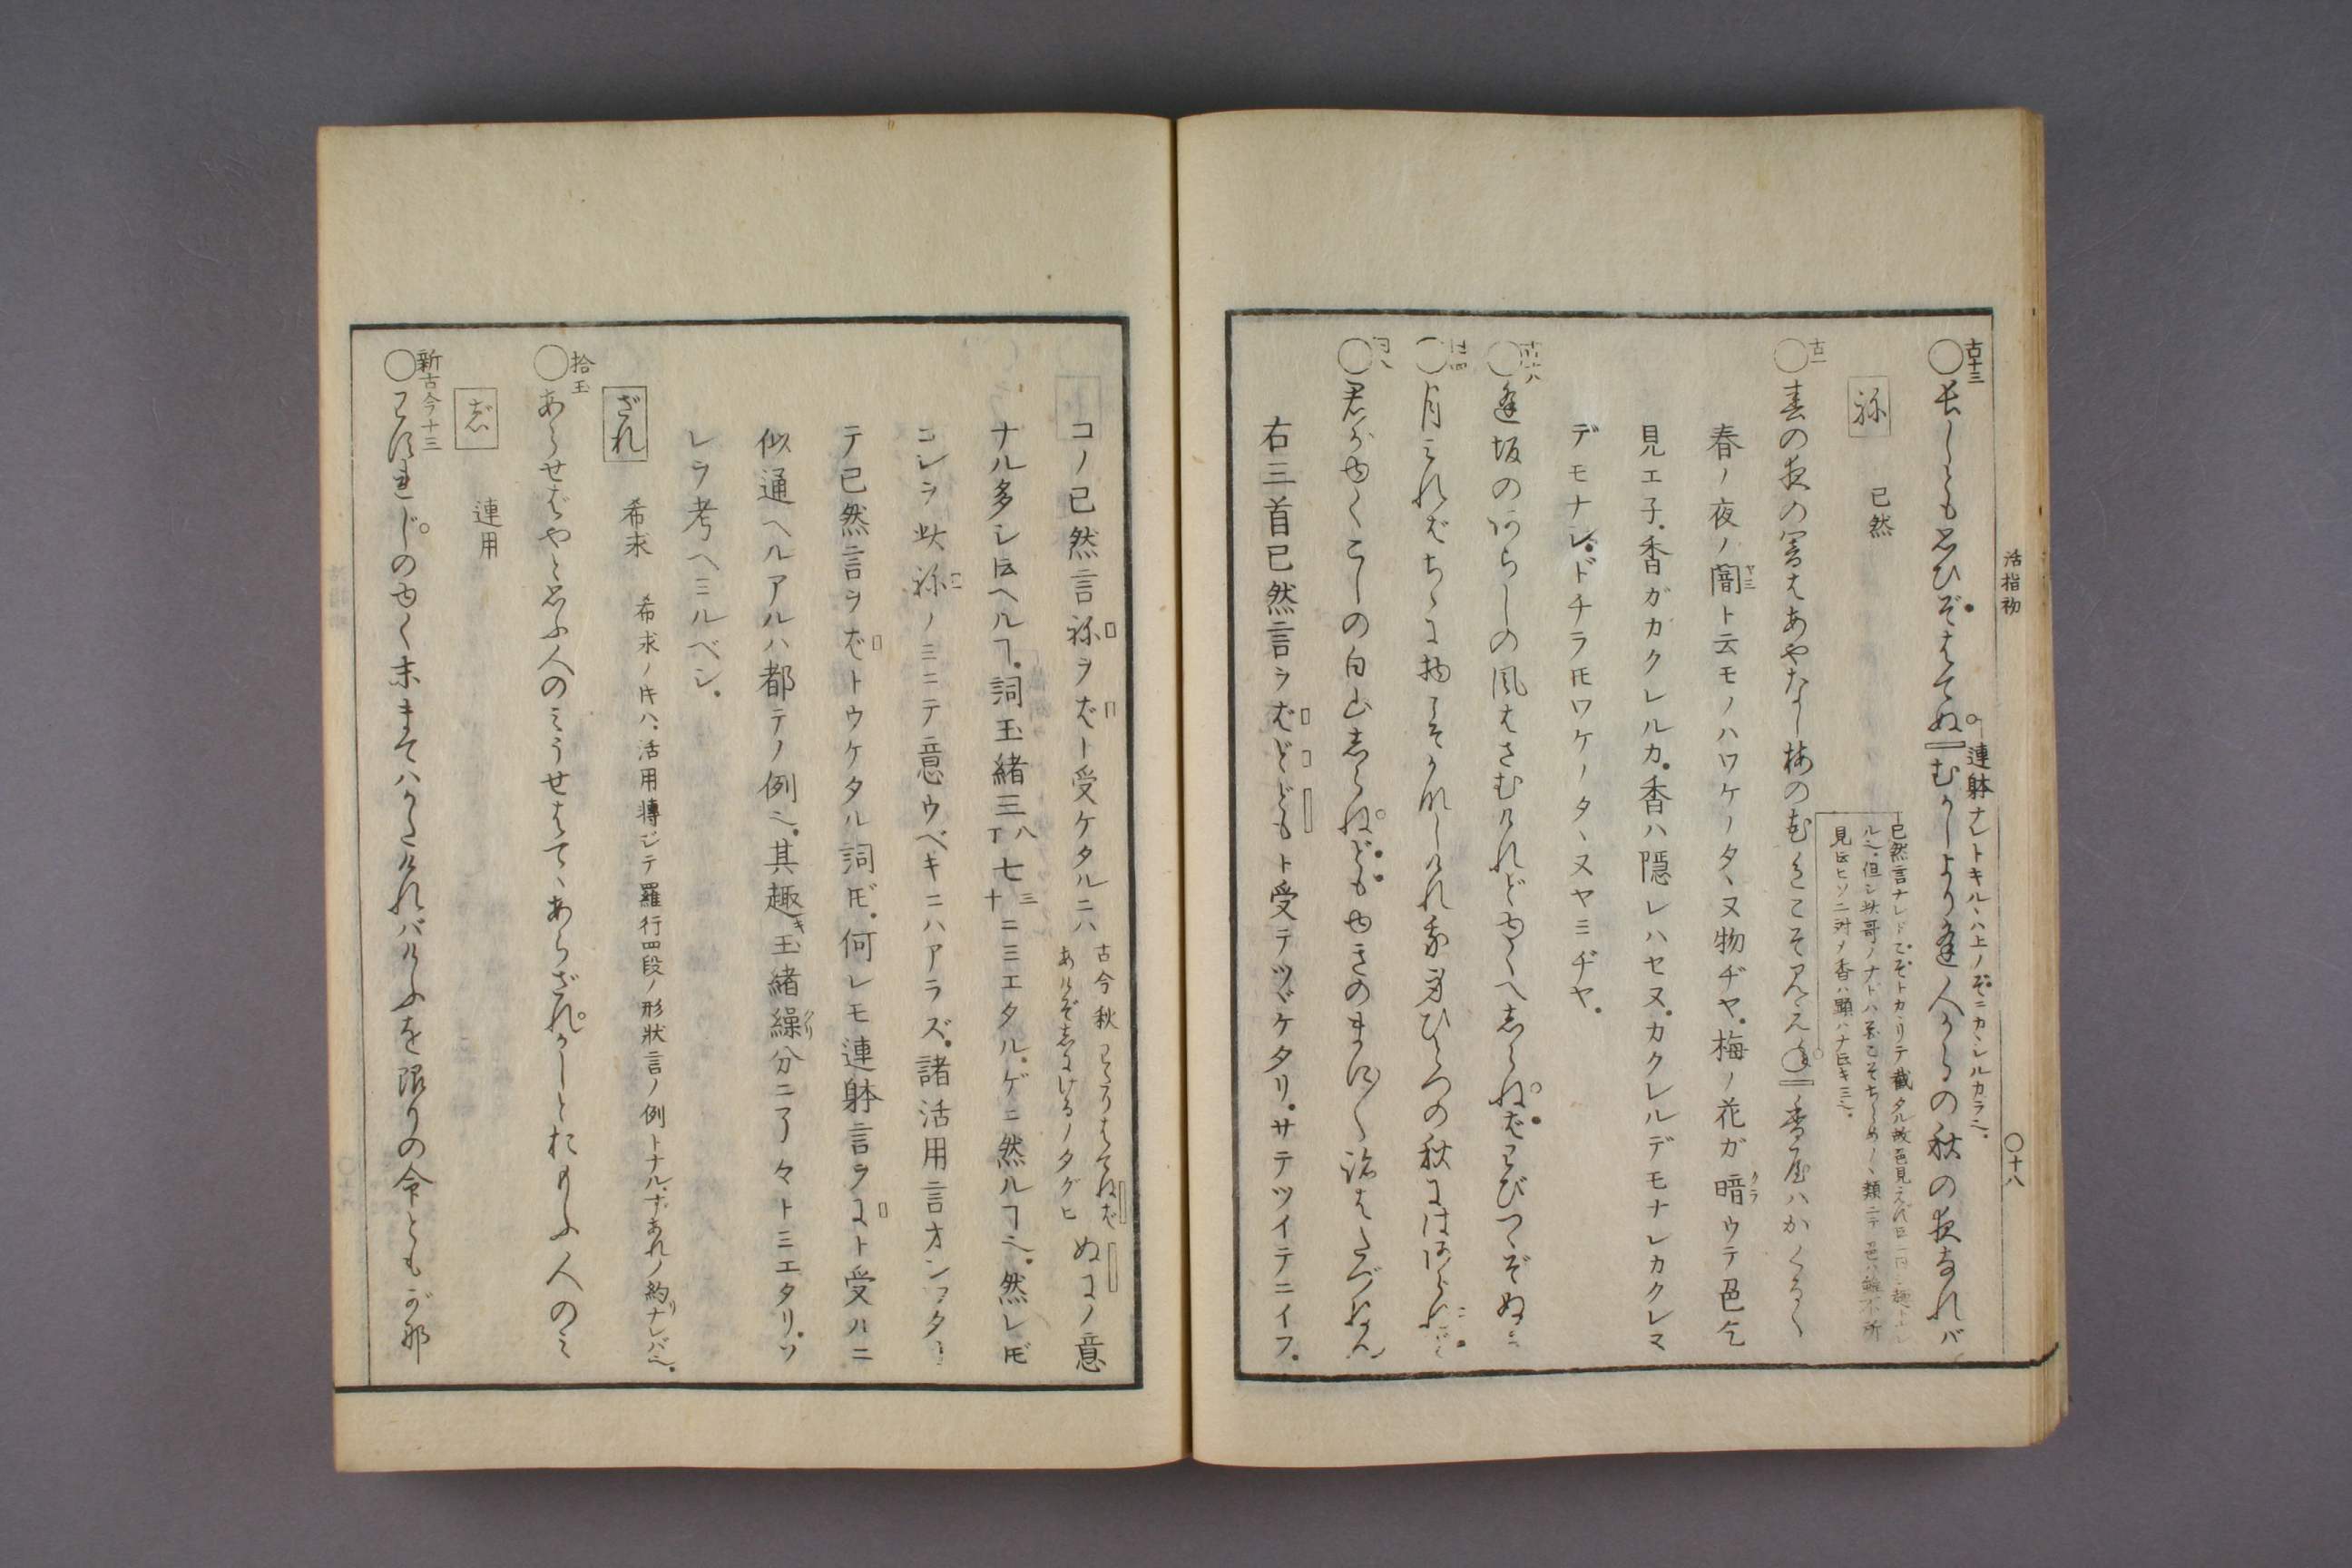 活指初
〇十八
古十三
〇長しとも思ひぞはてぬむかしより逢人からの秋の夜なれバ
連躰ナレトキルヽハ上ノぞニカヽレルカラ也。
祢 已然
古一
〇春の夜の闇はあやなし梅の花色こそ見えね香やハかくるゝ
春ノ夜ノ闇ト云モノハワケノタヽヌ物ヂヤ。梅ノ花ガ暗ウテ色コソ
見エ子。香ガカクレルカ。香ハ隠レハセヌ。カクレルデモナレカクレマ
デモナシ。ドチラ𪜈ワケノタヽヌヤミヂヤ。
逢坂のあらしの風はさむけれどゆくへ志らねばわびつゝぞぬる
〇月みればちゝに物こそかなしけれ我身ひとつの秋にはあらねど
〇君がゆくこしの白山志らねどもゆきのまに〳〵跡はたづねん
右三首已然言ヲばどどもト受テツヾケタリ。サテツイテニイフ。
コノ已然言祢ヲばト受ケタルニハ
古今秋
ぬにノ意
ナル多シト云ヘルヿ。詞玉緒三八丁七三十ニミエタル。ゲニ然ルヿ也。然レ𪜈
コレヲ此祢ノミニテ意ウベキニハアラズ。諸活用言オシワタシ
テ已然言ヲばトウケタル詞𪜈。何レモ連躰言ヲにト受ルニ
似通ヘルアルハ都テノ例也。其趣キ玉緒繰分ニ了々トミエタリ。ソ
レラ考ヘミルベシ。
ざれ 希求 希求ノ𪜈ハ、活用轉ジテ羅行四段ノ形状言ノ例トナル。ずあれノ約リナレバ也。
拾玉
〇あらせばやと思ふ人のみうせはてゝあらざれかしとおもふ人のみ
ず 連用
新古今十三
〇わすれじのゆく末まてハかたけれバけふを限りの命ともがな